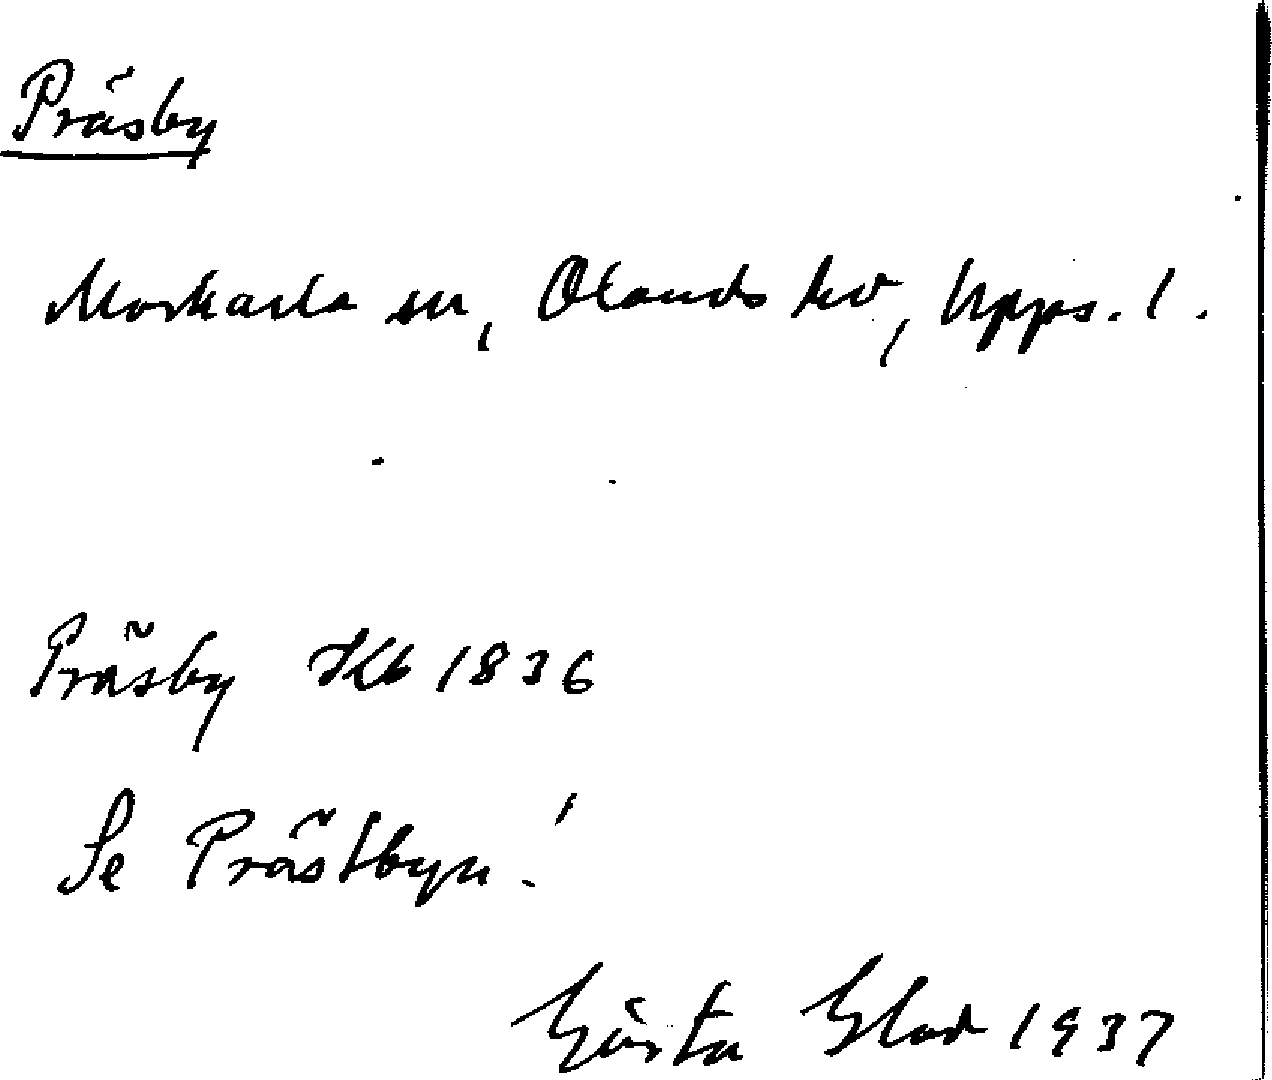 Präsby
Morkarla sn, Olands hd, Upps. l.
Präsby Kb 1836
Se Prästbyn!
Gösta Glad 1937